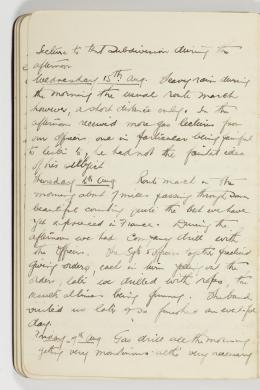 lecture to that Subdivision during the
afternoon
Wednesday 15th Aug. Heavy rain during
the morning the usual route march
however, a short distance only. In the
afternoon received more gas lectures from
our officers one in particular being painful
to listen to, he had not the faintest idea
of his subject
Thursday 16th Aug Route march in the
morning about 7 miles passing through some
beautiful country quite the best we have
yet experienced in France. During the
afternoon we had Company drill with
the Officers. The Sgts & Officers together practised
giving orders, each in turn out the
orders, later we drilled with ropes, the
usual being funny. The band
visited us later & so finished an eventful
day.
Friday 17th Aug Gas drill all the morning
getting very monotonous altho very necessary